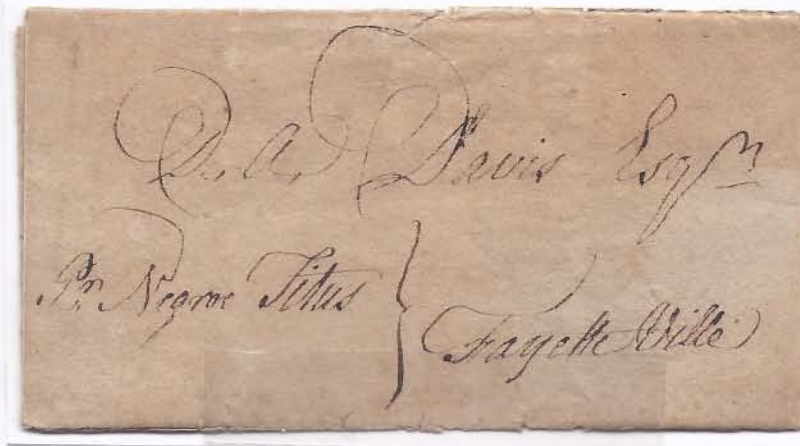 D. A. Davis Esqr
Pr Negroe Titus }
Fayette Ville